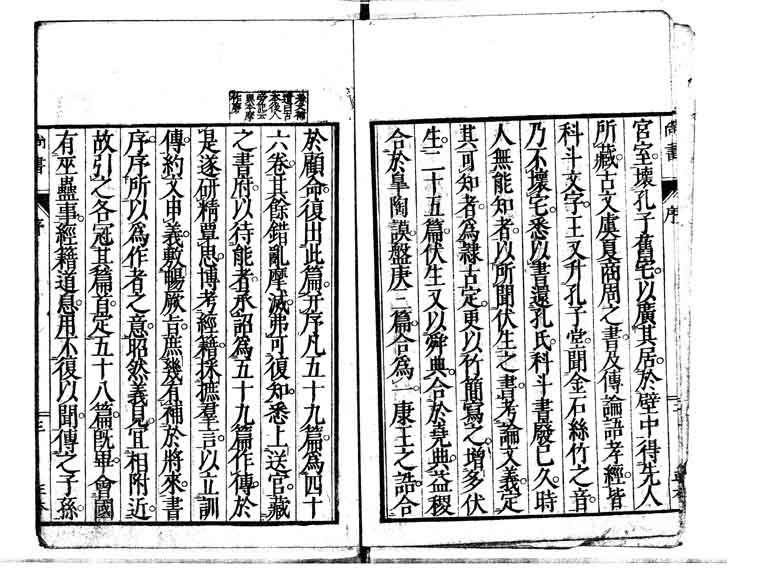 尚書
序
宮室壞孔子舊宅以廣其居於壁中得先人
所藏古文虞夏商周之書及傳論語孝經皆
科斗文字王又升孔子堂聞金石絲竹之音
乃不壞宅悉以書還孔氏科斗書廢已久時
人無能知者以所聞伏生之書考論文義定
其可知者爲隸古定更以竹簡寫之增多伏
生二十五篇伏生又以舜典合於堯典益稷
合於皐陶謨盤庚三篇合爲一康王之誥合
考文補
遺曰古
本後人
旁記云
異本摩
作磨
於顧命復出此篇并序凡五十九篇爲四十
六卷其餘錯亂摩滅弗可復知悉上送官藏
之書府以待能者承詔爲五十九篇作傳於
是遂研精覃思博考經籍採摭羣言以立訓
傳約文申義敷暢厥旨庶幾有補於將來書
序序所以爲作者之意昭然義見宜相附近
故引之各冠其篇首定五十八篇旣畢會國
有巫蠱事經籍道息用不復以聞傳之子孫
尚書
序
三